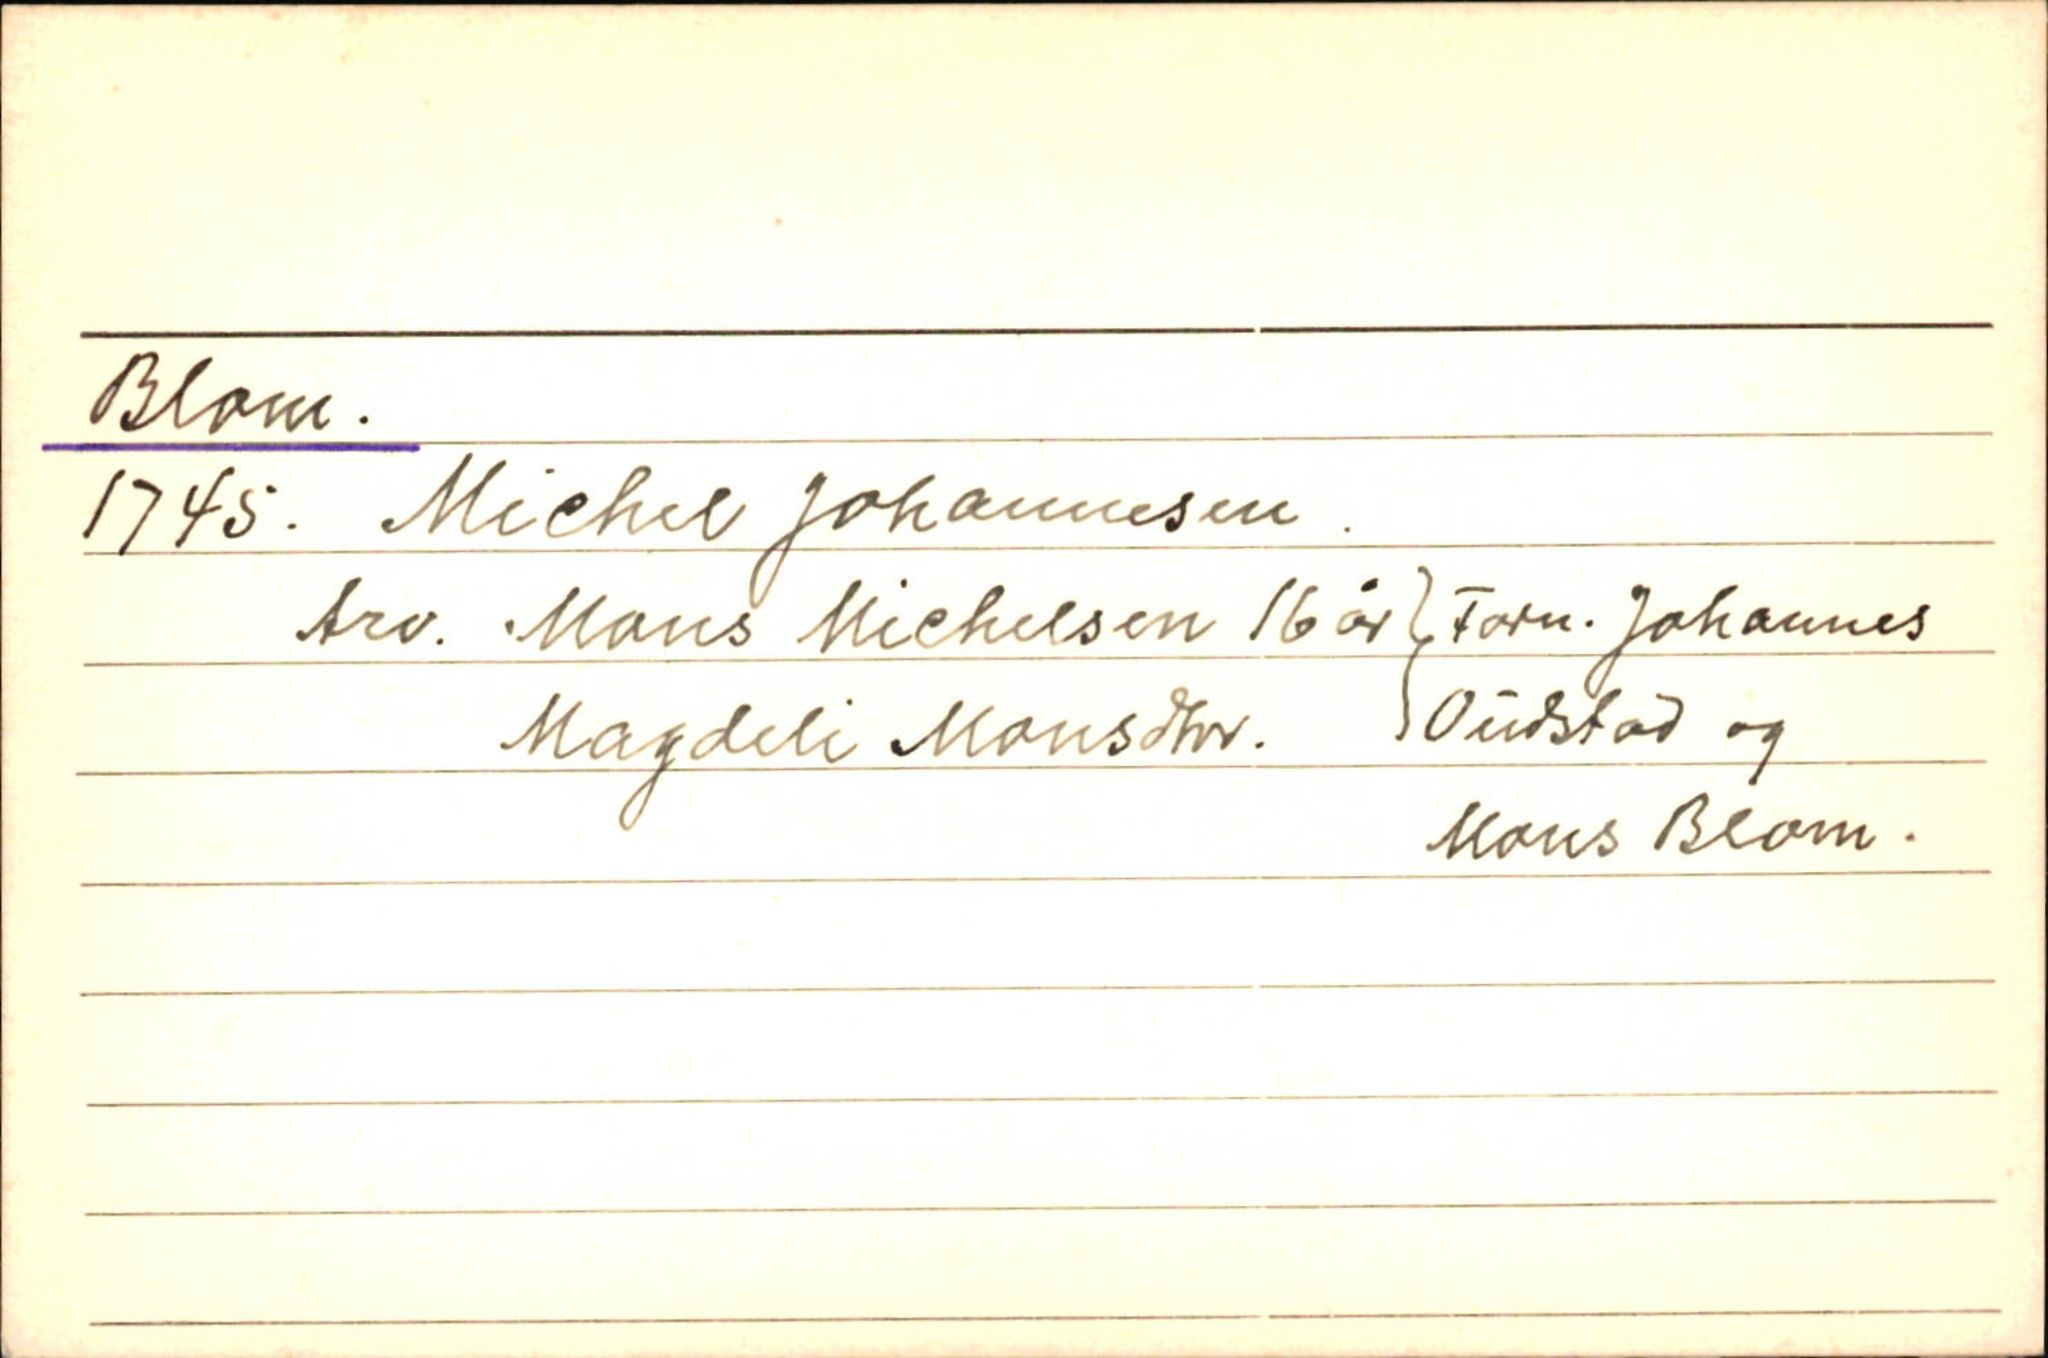 Blom.
1745. Michel Johannesen.
Arv. Mons Michelsen 16 år } Form. Johannes
Magdeli Monsdtr. } Oudstad og
Mons Blom.